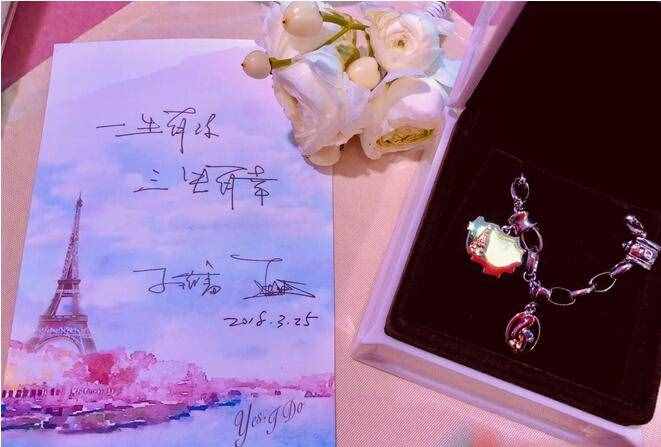 一生有你
三生有幸
2018.3.25
Yes·I Do